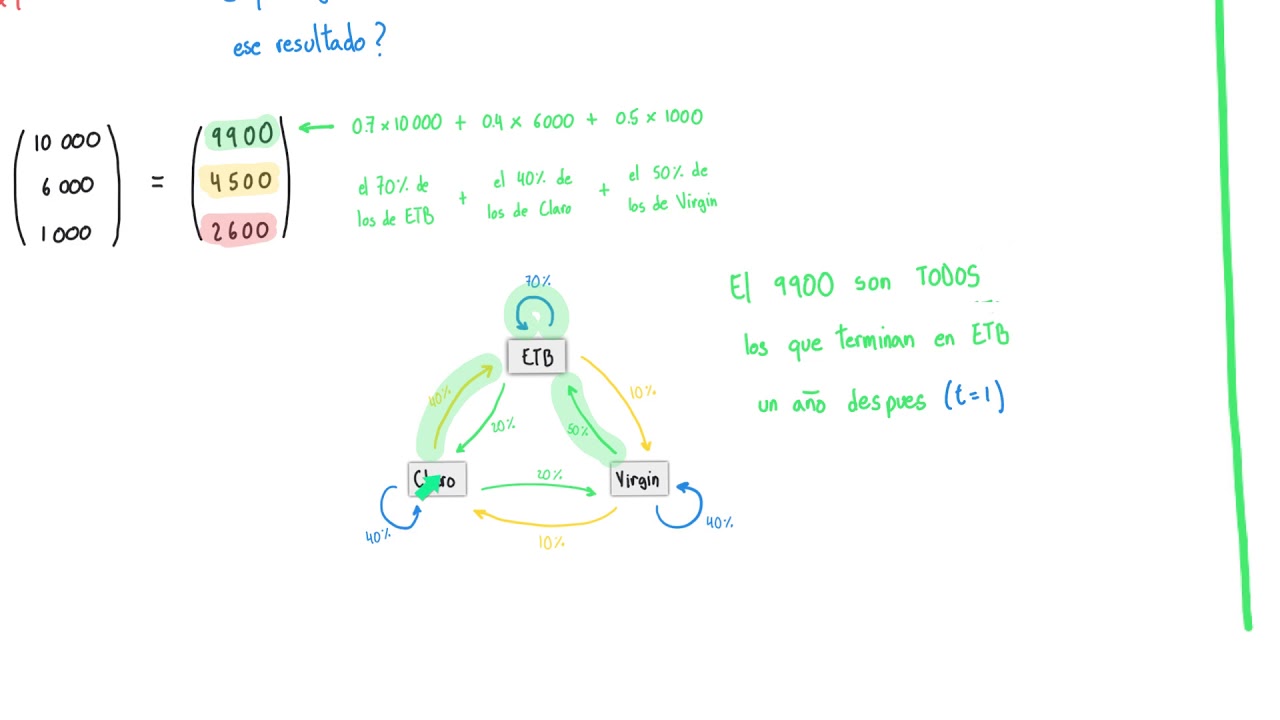 ese resultado?
10 000
6 000
1 000
=
9900
4500
2600
← 0.7 × 10 000 + 0.4 × 6000 + 0.5 × 1000
el 70% de los de ETB + el 40% de los de Claro + el 50% de los de Virgin
El 9900 son TODOS
los que terminan en ETB
un año despues (t=1)
70%
ETB
40%
20%
50%
10%
Claro
20%
Virgin
40%
10%
40%